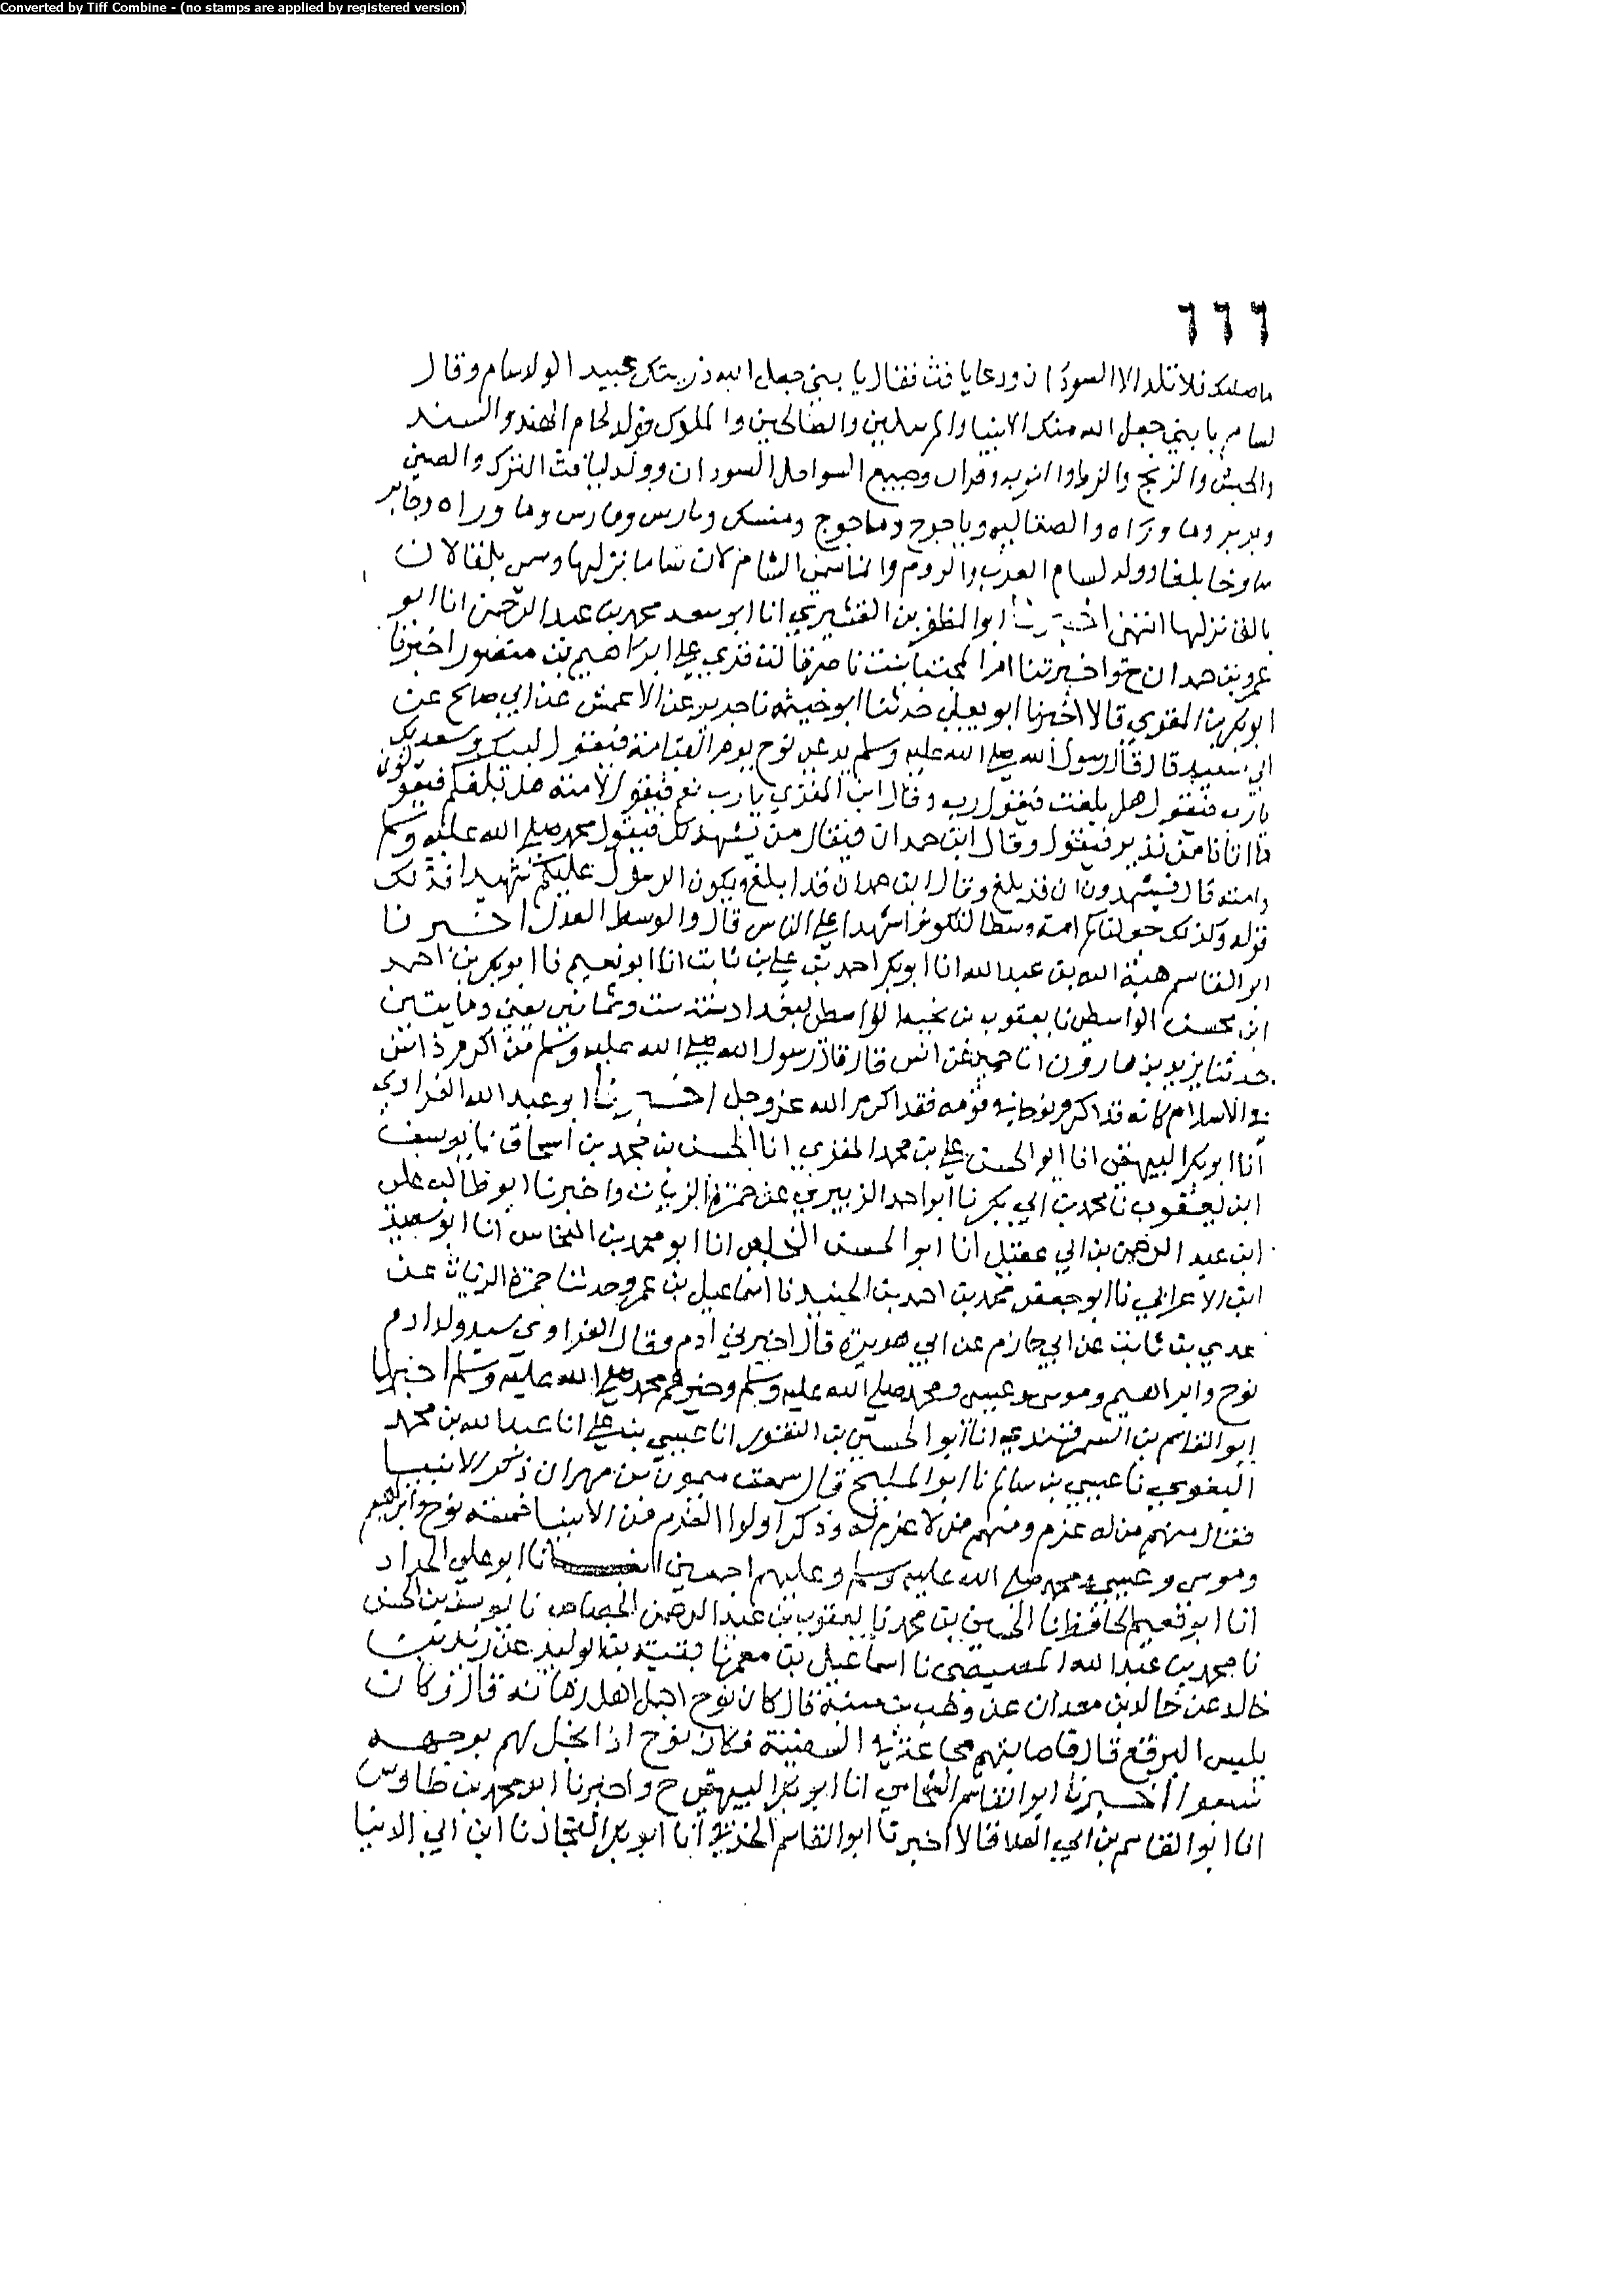 Converted by Tiff Combine - (no stamps are applied by registered version)
٦٦٦
ما صلبك فلا تلد الا السودان ودعا يافث فقال يا بني جعل الله ذريتك عبيد الولد سام وقال
لسام يا بني جعل الله منك الانبيا والمرسلين والصالحين والملوك فولد لحام الهند والسند
والحبش والزنج والزط والنوبه وفزان وجميع السواحل السودان وولد ليافث الترك والصين
وبربر وما وراه والصقالبه وياجوج وماجوج ومنسك وفارس وما وراه
وولد لسام العرب والروم والناس الشام لان ساما نزلها
نزلها انتهى اخبرنا ابو المظفر بن القشيري انا ابو سعد محمد بن عبد الرحمن انا ابو
عمرو بن حمدان ح واخبرتنا ام المجتبا بنت ناصر قالت قري علي ابراهيم بن منصور اخبرنا
ابو بكر بن المقري قالا اخبرنا ابو يعلي حدثنا ابو خيثمه نا جرير عن الاعمش عن ابي صالح عن
ابي سعيد قال قال رسول الله صلي الله عليه وسلم يدعي نوح يوم القيامة فيقول لبيك وسعديك
يارب فيقول هل بلغت فيقول رب وقال ابن المقري يا رب نعم فيقول لامته هل بلغكم فيقولون
ما اتانا من نذير فيقول وقال ابن حمدان فيقال من يشهد لك فيقول محمد صلي الله عليه وسلم
وامته قال فيشهدون ان قد بلغ وقال ابن حمدان قد ابلغ ويكون الرسول عليكم شهيدا فذلك
قوله وكذلك جعلناكم امة وسطا لتكونوا شهدا علي الناس قال والوسط العدل اخبرنا
ابو القاسم هبة الله بن عبد الله انا ابو بكر احمد بن علي بن ثابت انا ابو نعيم نا ابو بكر بن احمد
ابن محسن الواسطي نا يعقوب بن الواسطي ببغداد سنة ست وثمانين يعني ومايتين
حدثنا يزيد بن هارون انا حميد عن انس قال قال رسول الله صلي الله عليه وسلم من اكرم ذا سن
في الاسلام كانه قد اكرم نوحا في قومه فقد اكرم الله عز وجل اخبرنا ابو عبد الله الفراوي
انا ابو بكر البيهقي انا ابو الحسن علي بن محمد المقري انا الحسن بن محمد بن اسحاق نا يوسف
ابن يعقوب نا محمد بن ابي بكر نا ابو احمد الزبيري عن حمزة الزيات واخبرنا ابو طالب علي
ابن عبد الرحمن بن ابي عقيل انا ابو الحسن الخلعي انا ابو محمد بن النحاس انا ابو سعيد
ابن الاعرابي نا ابو جعفر محمد بن احمد بن الجنيد نا اسماعيل بن عمر وحدثنا حمزة الزيات عن
عدي بن ثابت عن ابي حازم عن ابي هريرة قال وقال الفراوي سيد ولد ادم
نوح وابراهيم وموسى وعيسى ومحمد صلي الله عليه وسلم وخيرهم محمد صلي الله عليه وسلم اخبرنا
ابو القاسم بن السمرقندي انا ابو الحسين بن النقور انا عيسي بن علي انا عبد الله بن محمد
البغوي نا عيسي بن سالم نا ابو المليح قال سمعت ميمون بن مهران ذكر الانبيا
فقال منهم من له عزم ومنهم من لا عزم له وذكر اولوا العزم من الانبيا خمسه نوح وابراهيم
وموسى وعيسي ومحمد صلي الله عليه وسلم وعليهم اجمعين انا ابو علي الحداد
انا ابو نعيم الحافظ نا الحسين بن محمد نا يعقوب بن عبد الرحمن الجصاص نا يوسف بن الحسن
نا محمد بن عبد الله المصيصي نا اسماعيل بن معمر نا بقيه بن الوليد عن زيد بن
خالد عن خالد بن معدان عن وهب بن منبه قال كان نوح اجمل اهل زمانه قال وكان
يلبس البرقع قال فاصابتهم مجاعة في السفينة فكان نوح اذا تجلى لهم بوجهه
شبعوا اخبرنا ابو القاسم الشحامي انا ابو بكر البيهقي ح واخبرنا ابو محمد بن طاوس
انا ابو القاسم بن ابي العلا قالا اخبرنا ابو القاسم الخرقي انا ابو بكر النجاد نا ابن ابي الدنيا